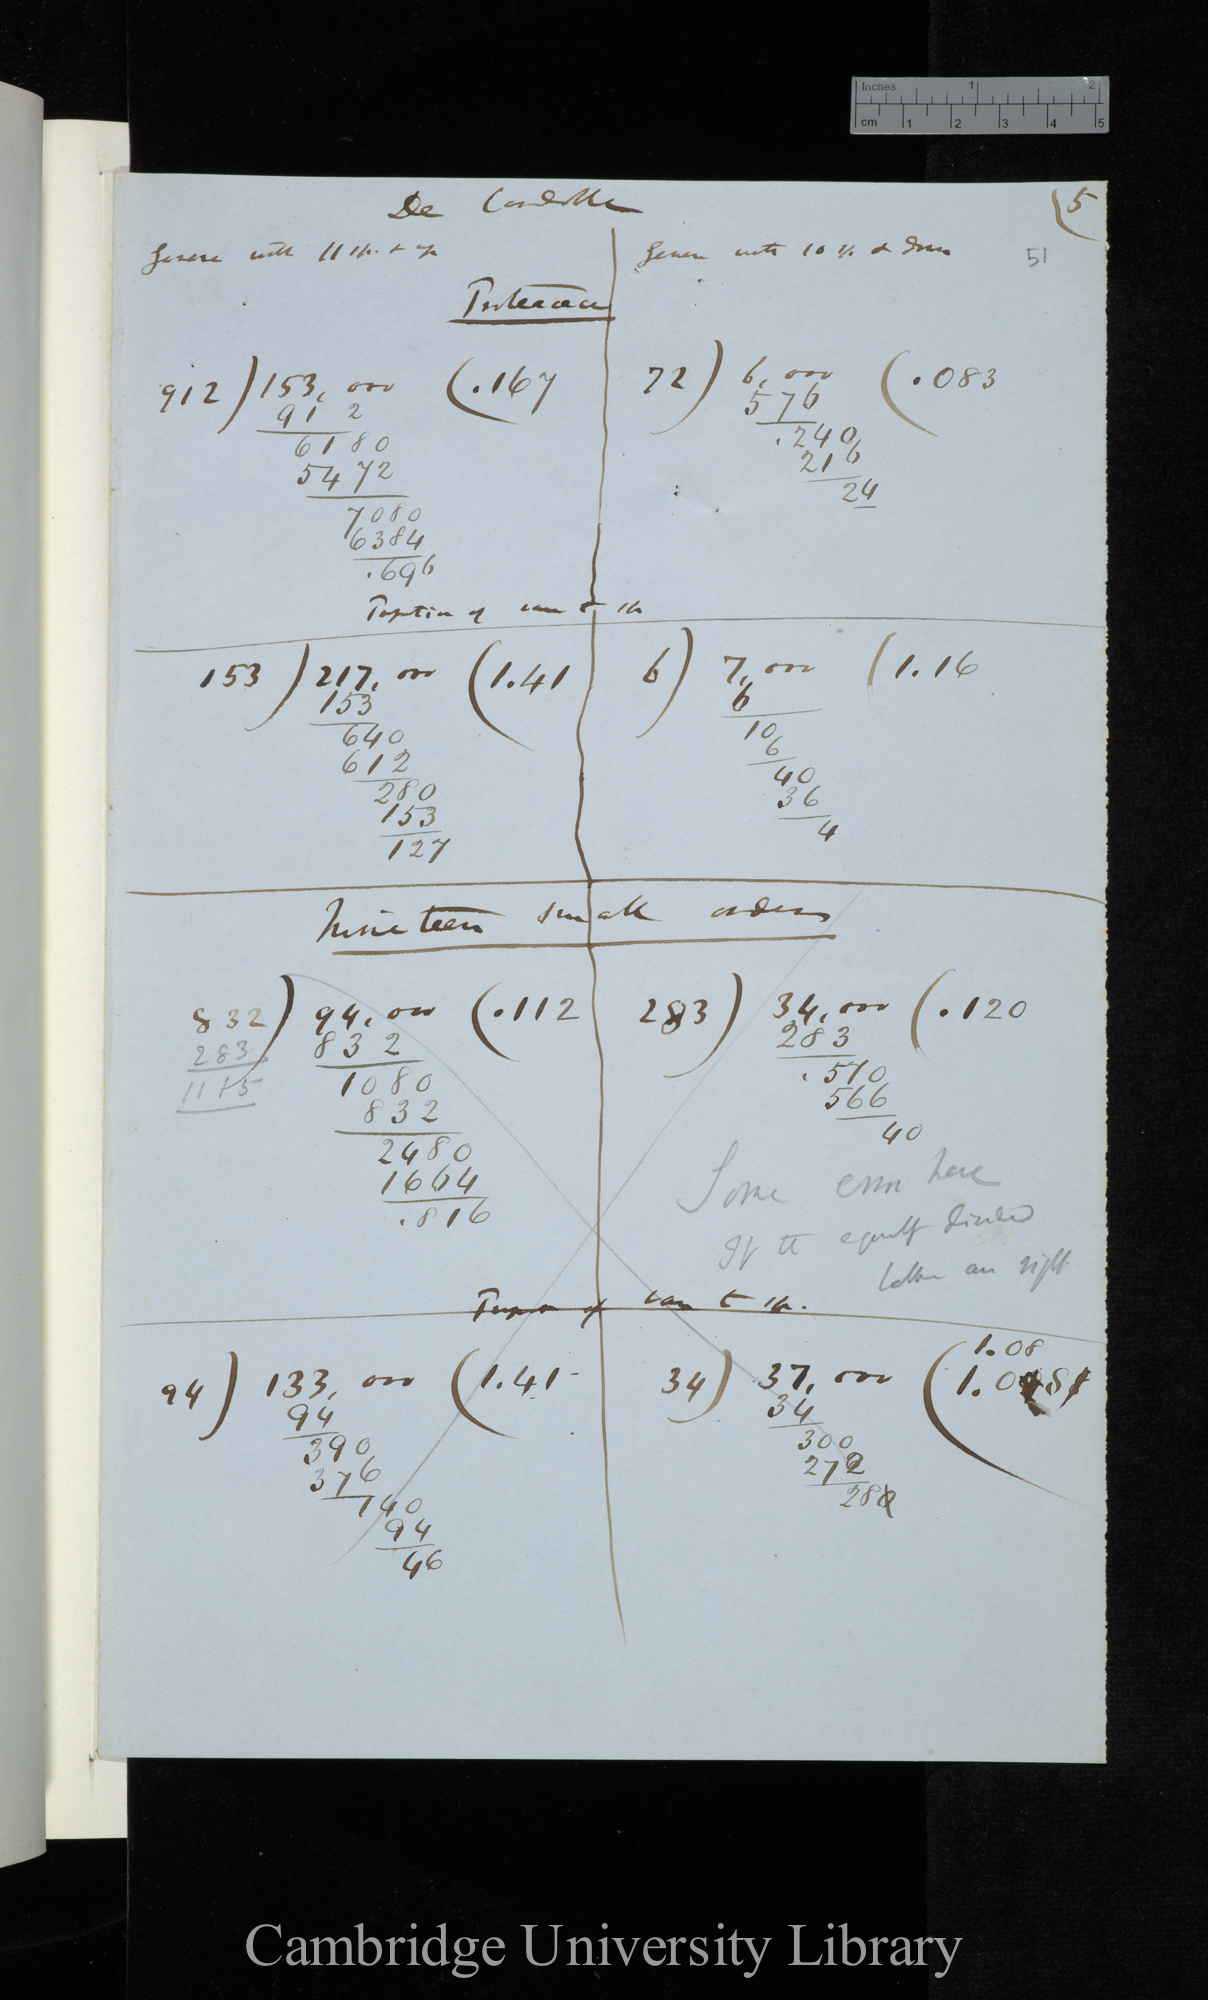 Inches 1 2
cm 1 2 3 4 5
De Candolle
(5
51
Genera with 11 sp. & up
Genera with 10 sp. & down
Proteaceæ
912) 153,000 (.167
912
6180
5472
7080
6384
.696
72) 6,000 (.083
576
.240
216
24
Proportion of vars to sp
153) 217,000 (1.41
153
640
612
280
153
127
6) 7,000 (1.16
6
10
6
40
36
4
Nineteen small orders
832) 94,000 (.112
283
1115
832
1080
832
2480
1664
.816
283) 34,000 (.120
283
.570
566
40
Some error here
If the equally divided
latter are right
Proportion of vars to sp.
94) 133,000 (1.41
94
390
376
140
94
46
34) 37,000 (1.08
34
300
272
28